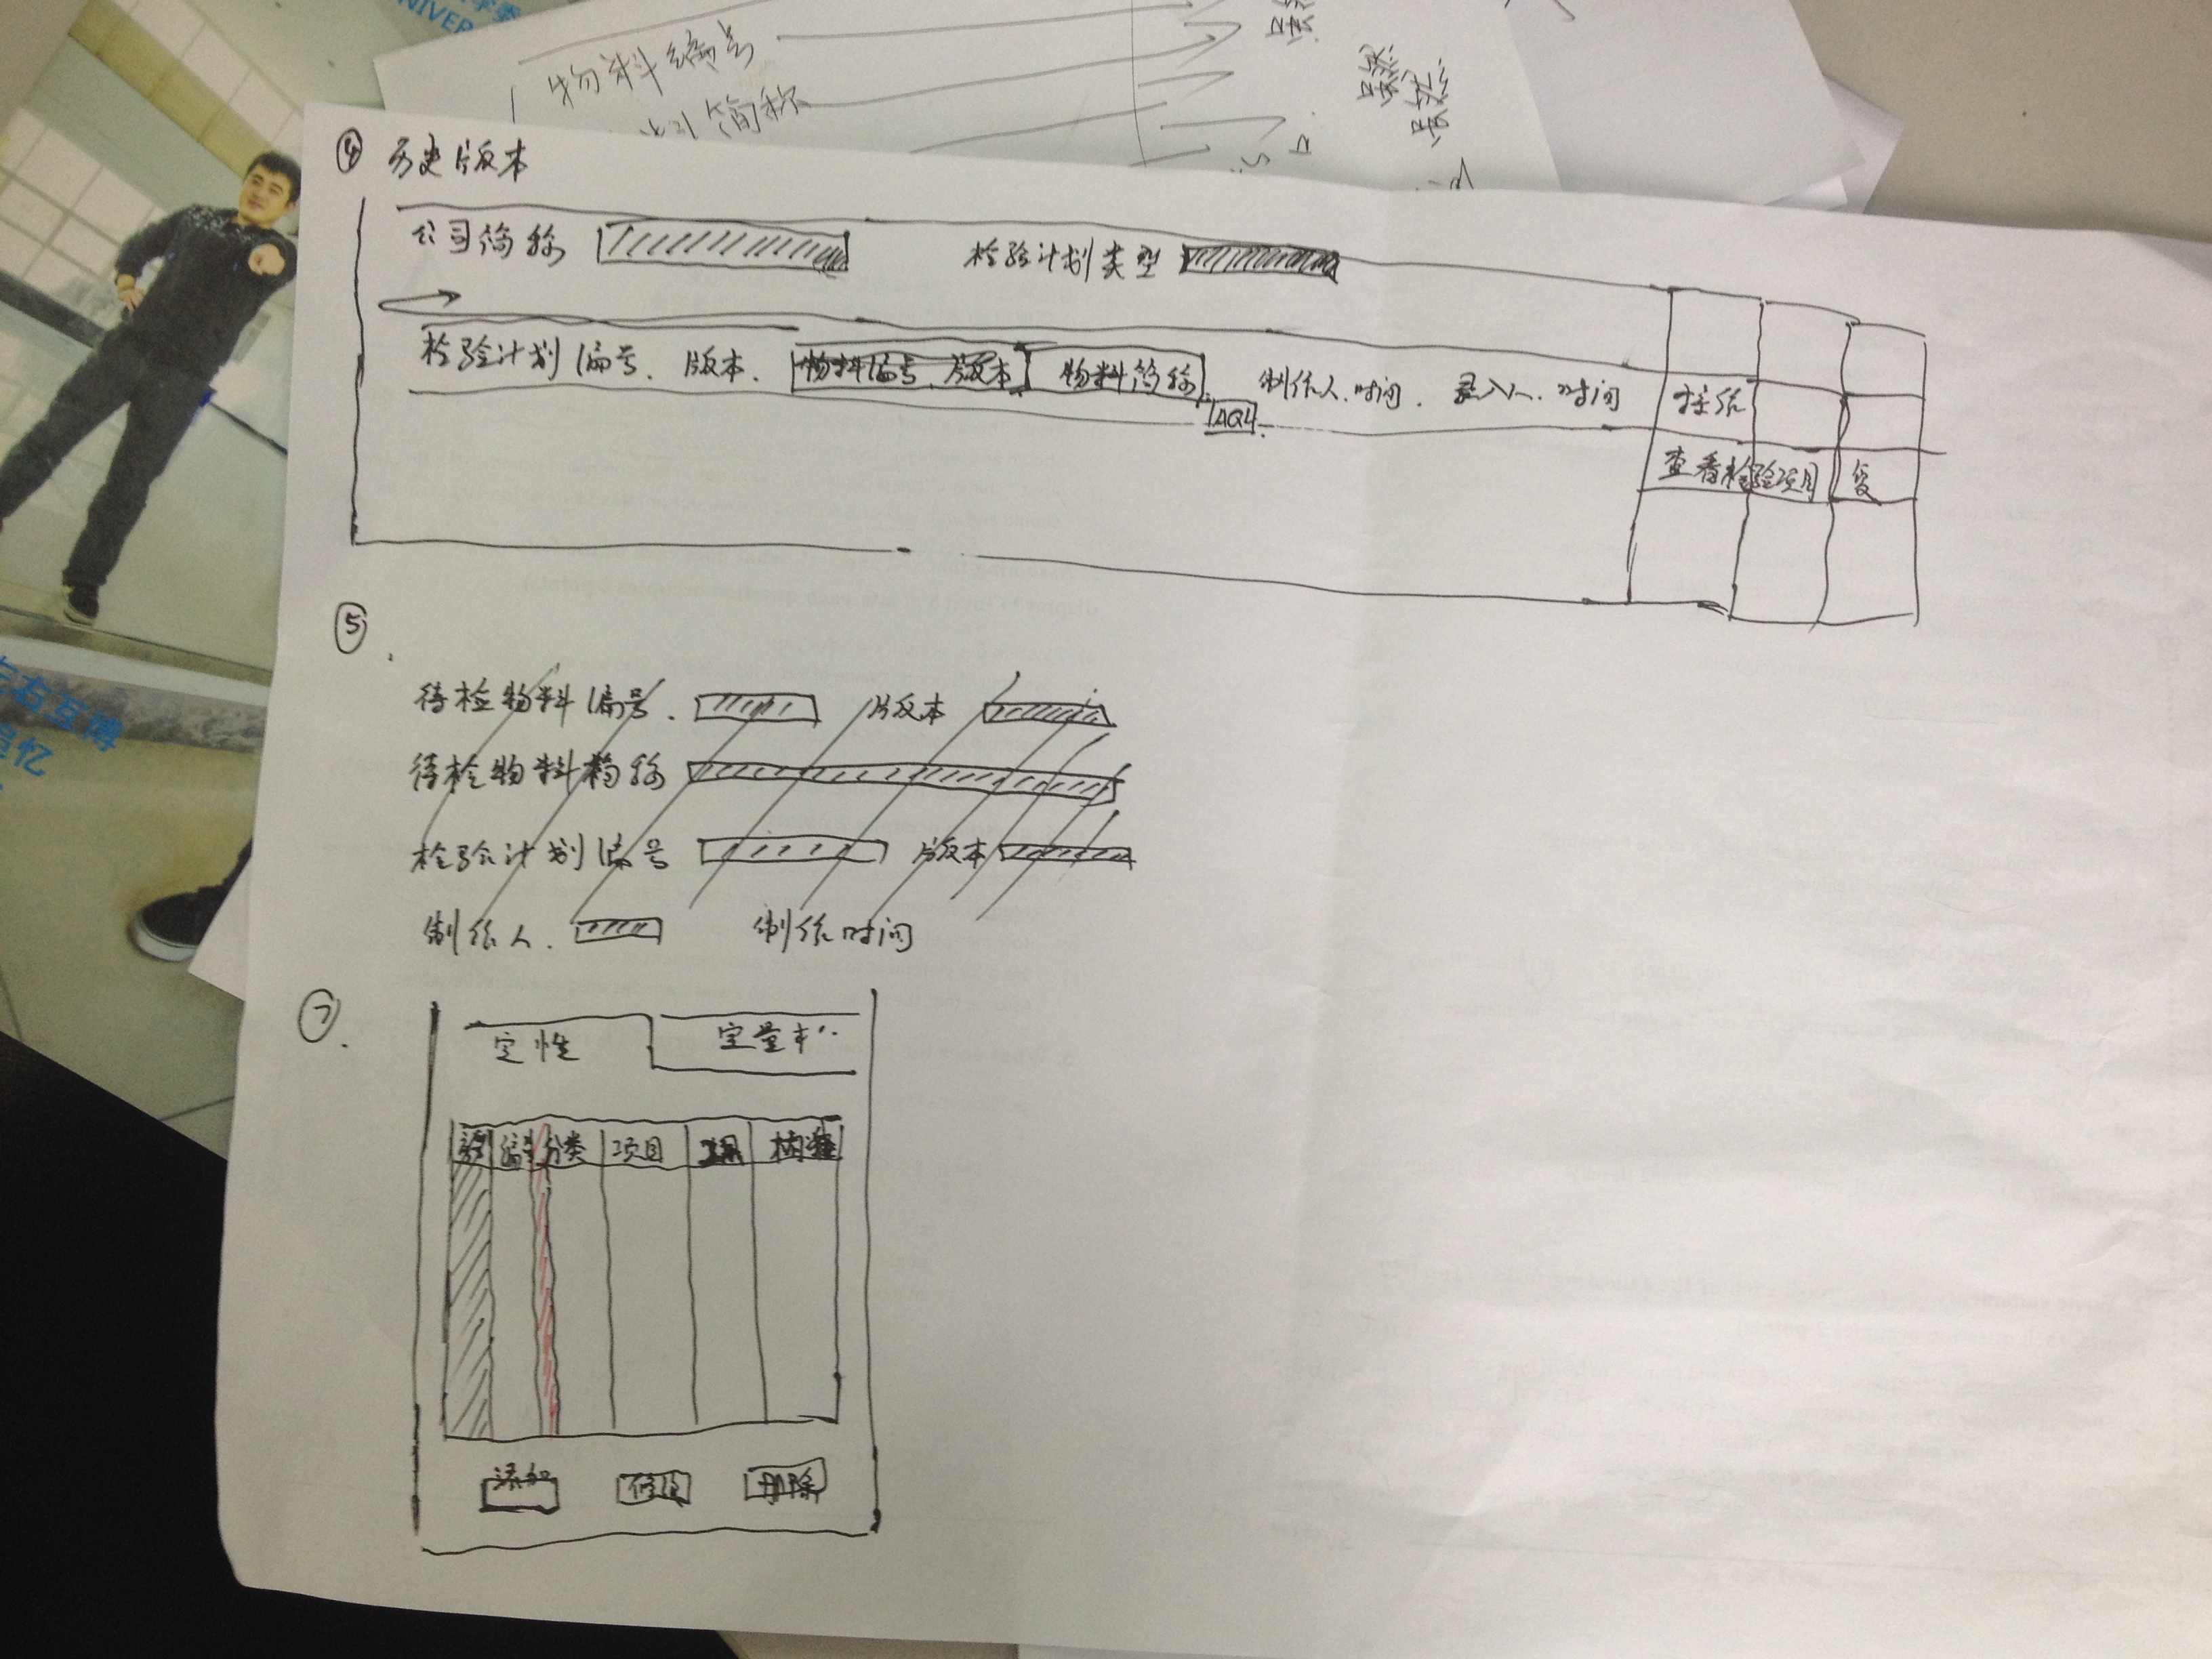 学季
UNIVER
物料编号
简称
④ 历史版本
公司简称 检验计划类型
检验计划编号、版本、物料编号、版本 物料简称、制作人、时间、录入人、时间 操作
AQL
查看检验项目 复
⑤
待检物料编号、 版本
待检物料简称
检验计划编号 版本
制作人、 制作时间
左右互博
追忆
⑦
定性 定量
编号 分类 项目
添加 修改 删除